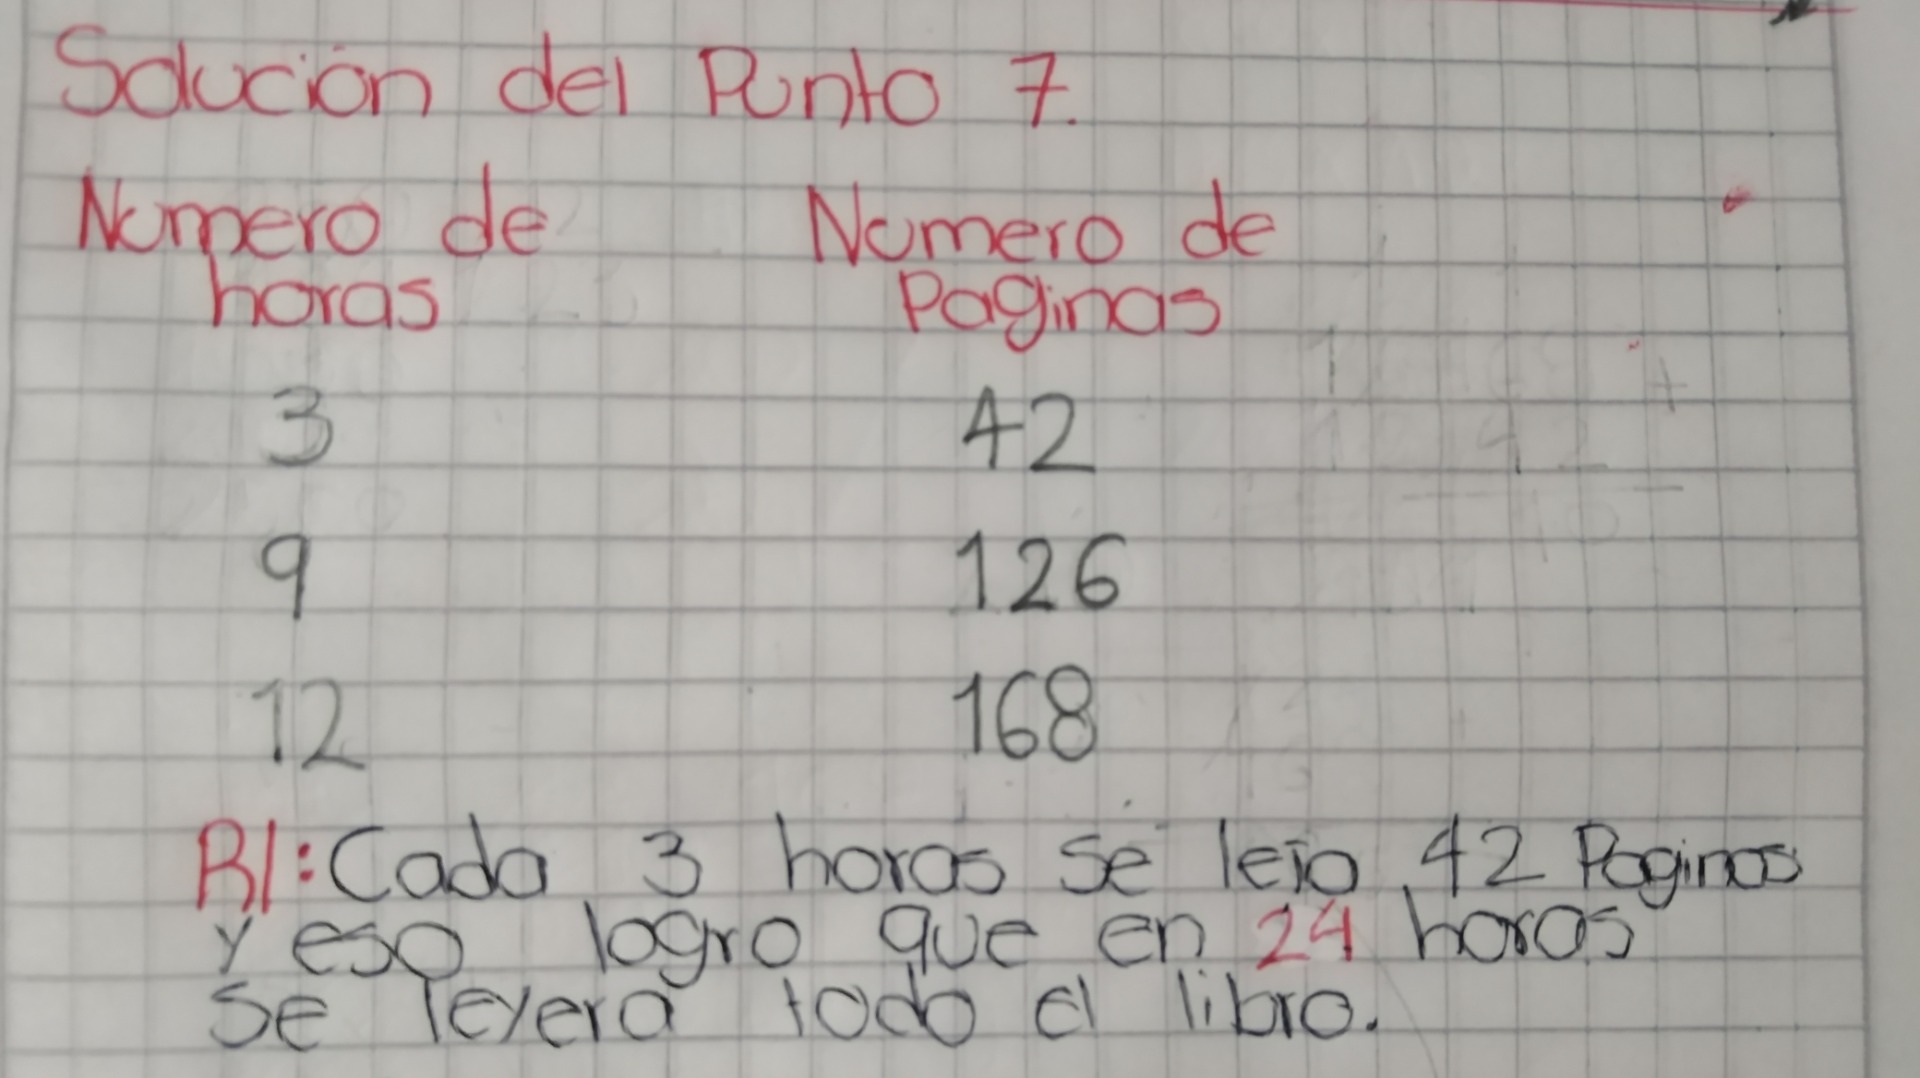 Solución del Punto 7.
Numero de horas
Numero de Paginas
3 42
9 126
12 168
R/: Cada 3 horas se leio 42 Paginas
y eso logro que en 24 horas
se leyera todo el libro.